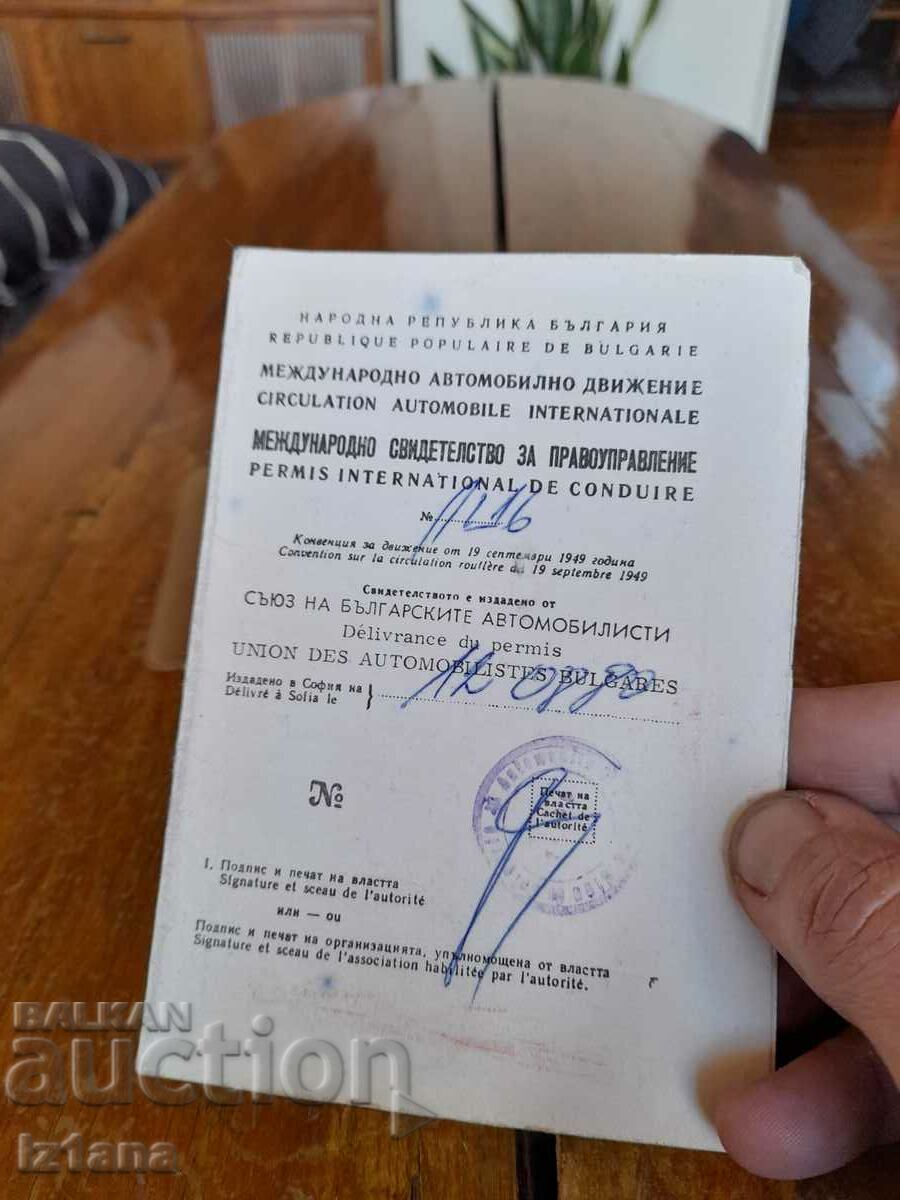 НАРОДНА РЕПУБЛИКА БЪЛГАРИЯ
REPUBLIQUE POPULAIRE DE BULGARIE
МЕЖДУНАРОДНО АВТОМОБИЛНО ДВИЖЕНИЕ
CIRCULATION AUTOMOBILE INTERNATIONALE
МЕЖДУНАРОДНО СВИДЕТЕЛСТВО ЗА ПРАВОУПРАВЛЕНИЕ
PERMIS INTERNATIONAL DE CONDUIRE
№
Конвенция за движение от 19 септември 1949 година
Convention sur la circulation routière du 19 septembre 1949
Свидетелството е издадено от
СЪЮЗ НА БЪЛГАРСКИТЕ АВТОМОБИЛИСТИ
Délivrance du permis
UNION DES AUTOMOBILISTES BULGARES
Издадено в София на
Délivré à Sofia le
№
Печат на
властта
Cachet de
l'autorité
1. Подпис и печат на властта
Signature et sceau de l'autorité
или — ou
Подпис и печат на организацията, упълномощена от властта
Signature et sceau de l'association habilitée par l'autorité.
BALKAN
auction
iz1ana